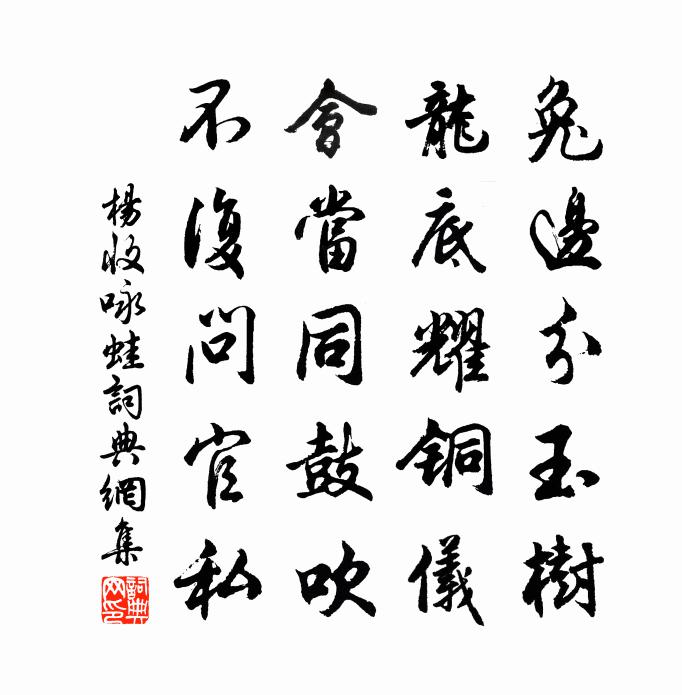 兔邊分玉樹
龍底耀銅儀
會當同鼓吹
不復問官私
楊收咏蛙詞典網集
詞典網印